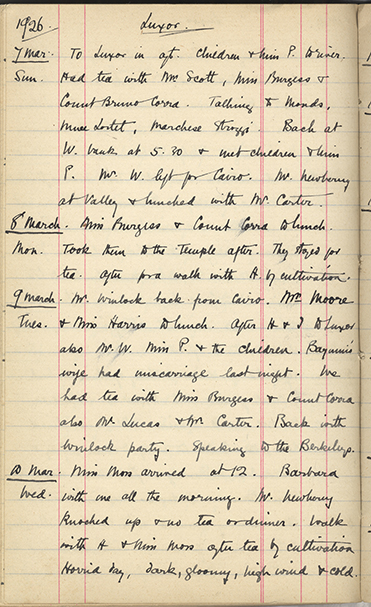 1926. Luxor.
7 Mar. To Luxor in aft. Children & Miss P. driver.
Sun. Had tea with Mr Scott, Miss Burgess &
Count Bruno Corra. Talking to Monds,
Mme Lortet, Marchese. Back at
W. bank at 5.30 & met children & Miss
P. Mr. W. left for Cairo. Mr. Newberry
at Valley & lunched with Mr. Carter.
8th March. Miss Burgess & Count Corra to lunch.
Mon. Took them to the Temple after. They stayed for
tea. After for a walk with H. by cultivation.
9 March. Mr. Winlock back from Cairo. Mrs Moore
Tues. & Miss Harris to lunch. After H & I to Luxor
also Mr. W. Miss P. & the children. Bayumi's
wife had miscarriage last night. We
had tea with Miss Burgess & Count Corra
also Mr Lucas & Mr Carter. Back with
Winlock party. Speaking to the Berkeleys.
10 Mar. Miss Moss arrived at 12. Barbara
Wed. with me all the morning. Mr. Newberry
knocked up & no tea or dinner. Walk
with H & Miss Moss after tea by cultivation
Horrid day, dark, gloomy, high wind & cold.